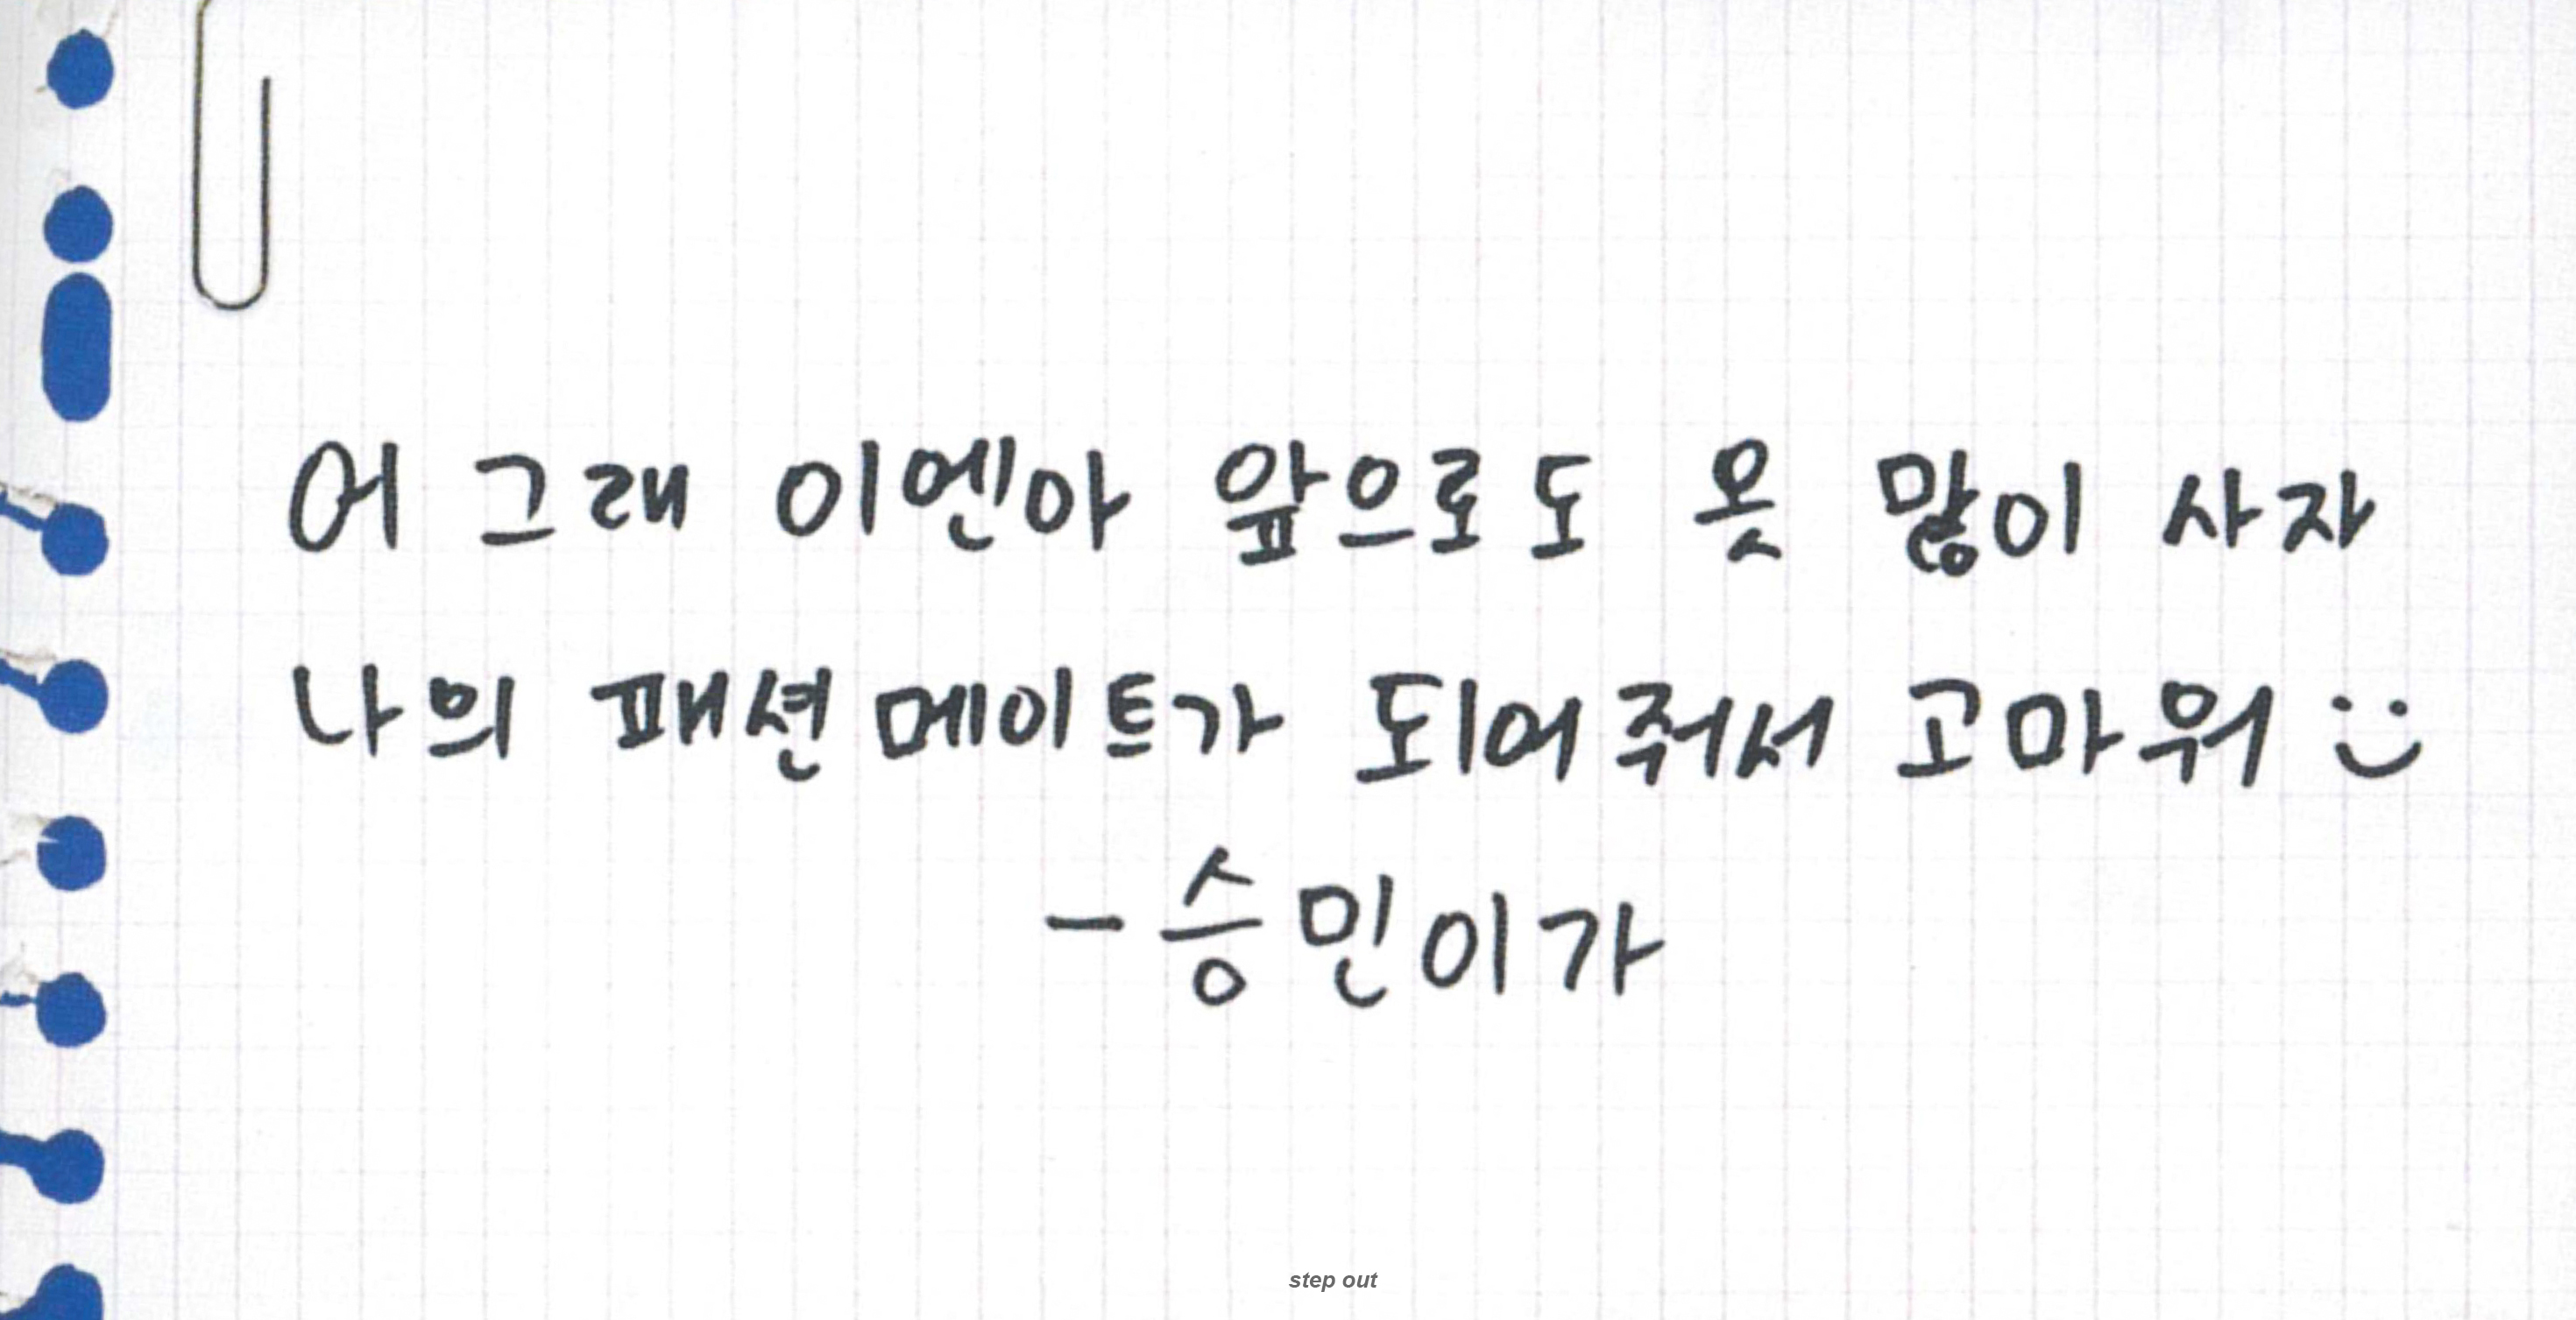 어 그래 이엔아 앞으로도 옷 많이 사자
나의 패션메이트가 되어줘서 고마워 :)
- 승민이가
step out